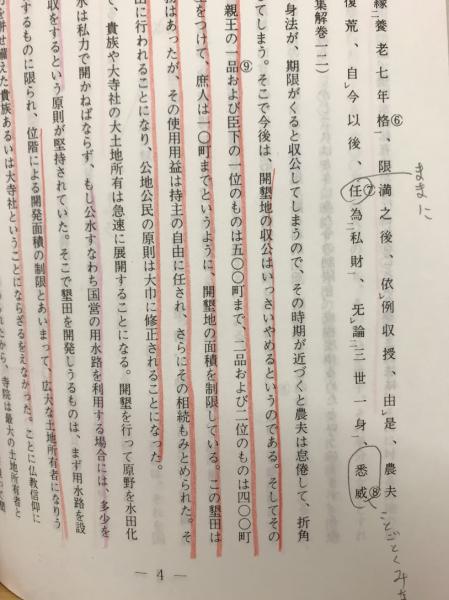 縁養老七年格⑥、限満之後、依例収授、由是、農夫
復荒、自今以後、任⑦為私財、无論三世一身、悉威⑧
ままに
ことごとくみな
集解巻一二)
身法が、期限がくると収公してしまうので、その時期が近づくと農夫は怠倦して、折角
てしまう。そこで今後は、開墾地の収公はいっさいやめるというのである。そしてその
親王の一品および臣下の一位のものは五〇〇町まで、二品および二位のものは四〇〇町
⑨
をつけて、庶人は一〇町までというように、開墾地の面積を制限している。この墾田は
務はあったが、その使用用益は持主の自由に任され、さらにその相続もみとめられた。そ
由に行われることになり、公地公民の原則は大巾に修正されることになった。
、貴族や大寺社の大土地所有は急速に展開することになる。開墾を行って原野を水田化
水は私力で開かねばならず、もし公水すなわち国営の用水路を利用する場合には、多少を
収をするという原則が堅持されていた。そこで墾田を開発しうるものは、まず用水路を設
するものに限られ、位階による開発面積の制限とあいまって、広大な土地所有者になりう
を併せ備えた貴族あるいは大寺社ということにならざるをえなかった。ことに仏教信仰に
から、寺院は最大の土地所有者と
— 4 —